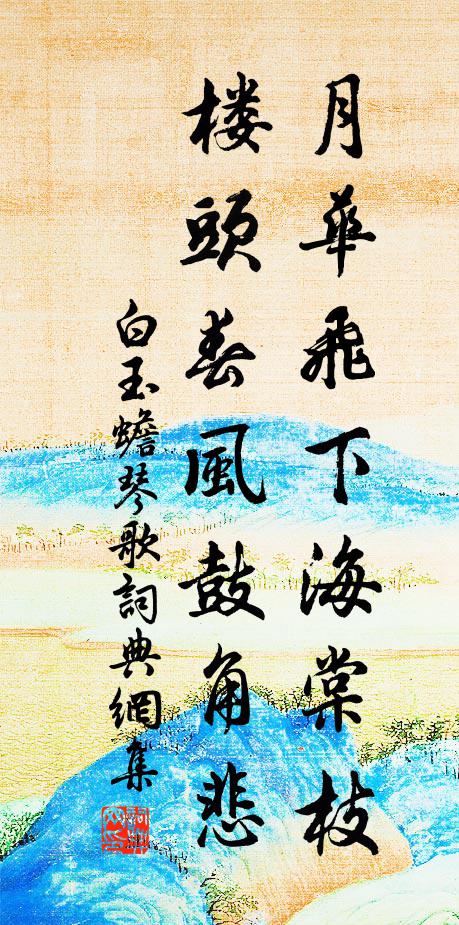 月華飛下海棠枝
楼頭春風鼓角悲
白玉蟾琴歌詞典網集